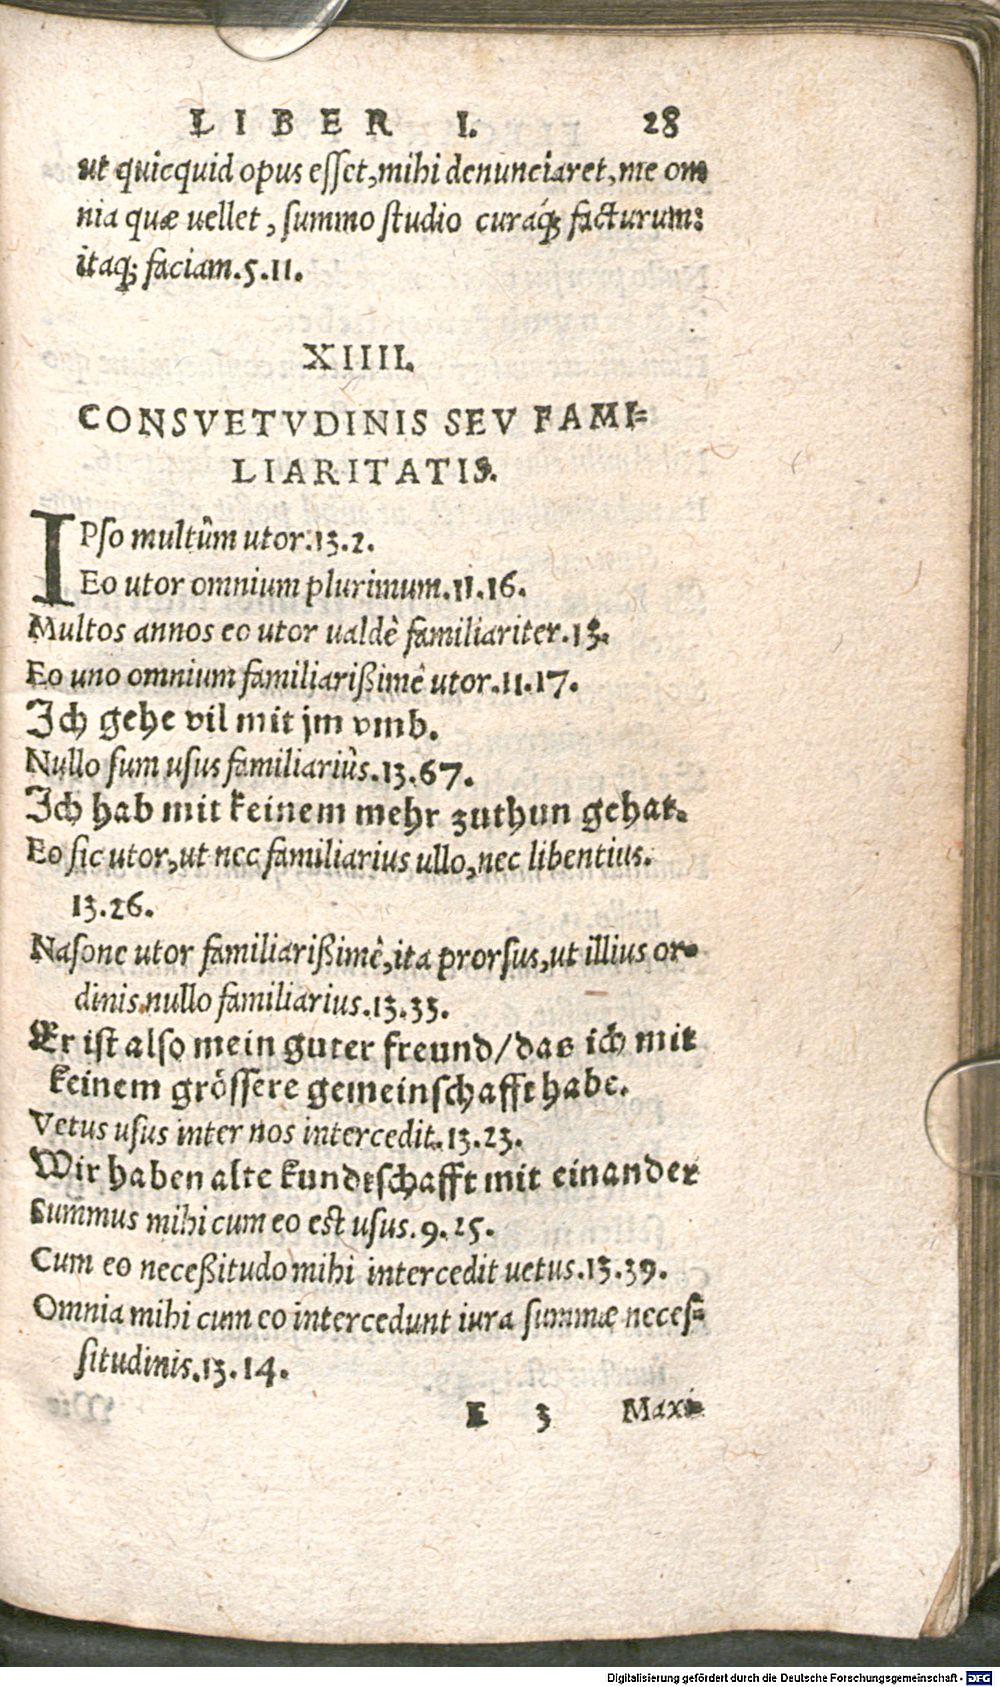 LIBER I. 28
ut quicquid opus esset, mihi denunciaret, me om
nia quæ uellet, summo studio curaq́; facturum:
itaq; faciam. 5.11.
XIIII.
CONSVETVDINIS SEV FAMI-
LIARITATIS.
IPso multûm utor. 13.2.
Eo utor omnium plurimum. 11.16.
Multos annos eo utor ualdè familiariter. 13.
Eo uno omnium familiarißimè utor. 11.17.
Ich gehe vil mit jm vmb.
Nullo sum usus familiariùs. 13.67.
Ich hab mit keinem mehr zuthun gehat.
Eo sic utor, ut nec familiarius ullo, nec libentius.
13.26.
Nasone utor familiarißimè, ita prorsus, ut illius or-
dinis nullo familiarius. 13.33.
Er ist also mein guter freund/das ich mit
keinem grössere gemeinschafft habe.
Vetus usus inter nos intercedit. 13.23.
Wir haben alte kundtschafft mit einander
Summus mihi cum eo est usus. 9.25.
Cum eo neceßitudo mihi intercedit uetus. 13.39.
Omnia mihi cum eo intercedunt iura summæ neces-
situdinis. 13.14.
E 3 Maxi-
Digitalisierung gefördert durch die Deutsche Forschungsgemeinschaft - DFG